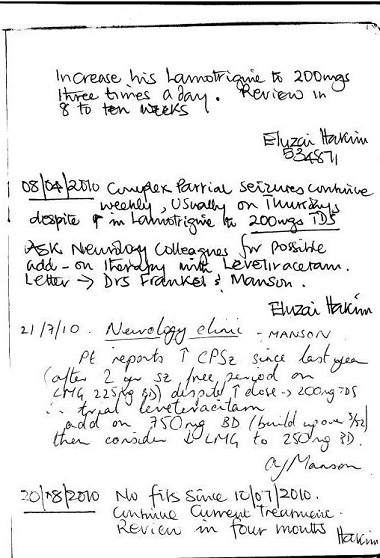 Increase his Lamotrigine to 200mgs
three times a day. Review in
8 to ten weeks
Eluzai Hakim
534871
08/04/2010 Complex Partial seizures continue
weekly, Usually on Thursdays
despite ↑ in Lamotrigine to 200mgs TDS
ASK Neurology Colleagues for possible
add-on therapy with Levetiracetam.
Letter → Drs Frankel & Manson.
Eluzai Hakim
21/7/10. Neurology clinic - MANSON
Pt reports ↑ CPSz since last year
(after 2 yr sz free period on
LMG 225mg BD) despite ↑ dose → 200mg TDS
∴ trial levetiracitam
add on 750mg BD (build up over 3/52)
then consider ↓ LMG to 250mg BD.
AJManson
20/08/2010 No fits since 12/07/2010.
Continue Current treatment.
Review in four months Hakim